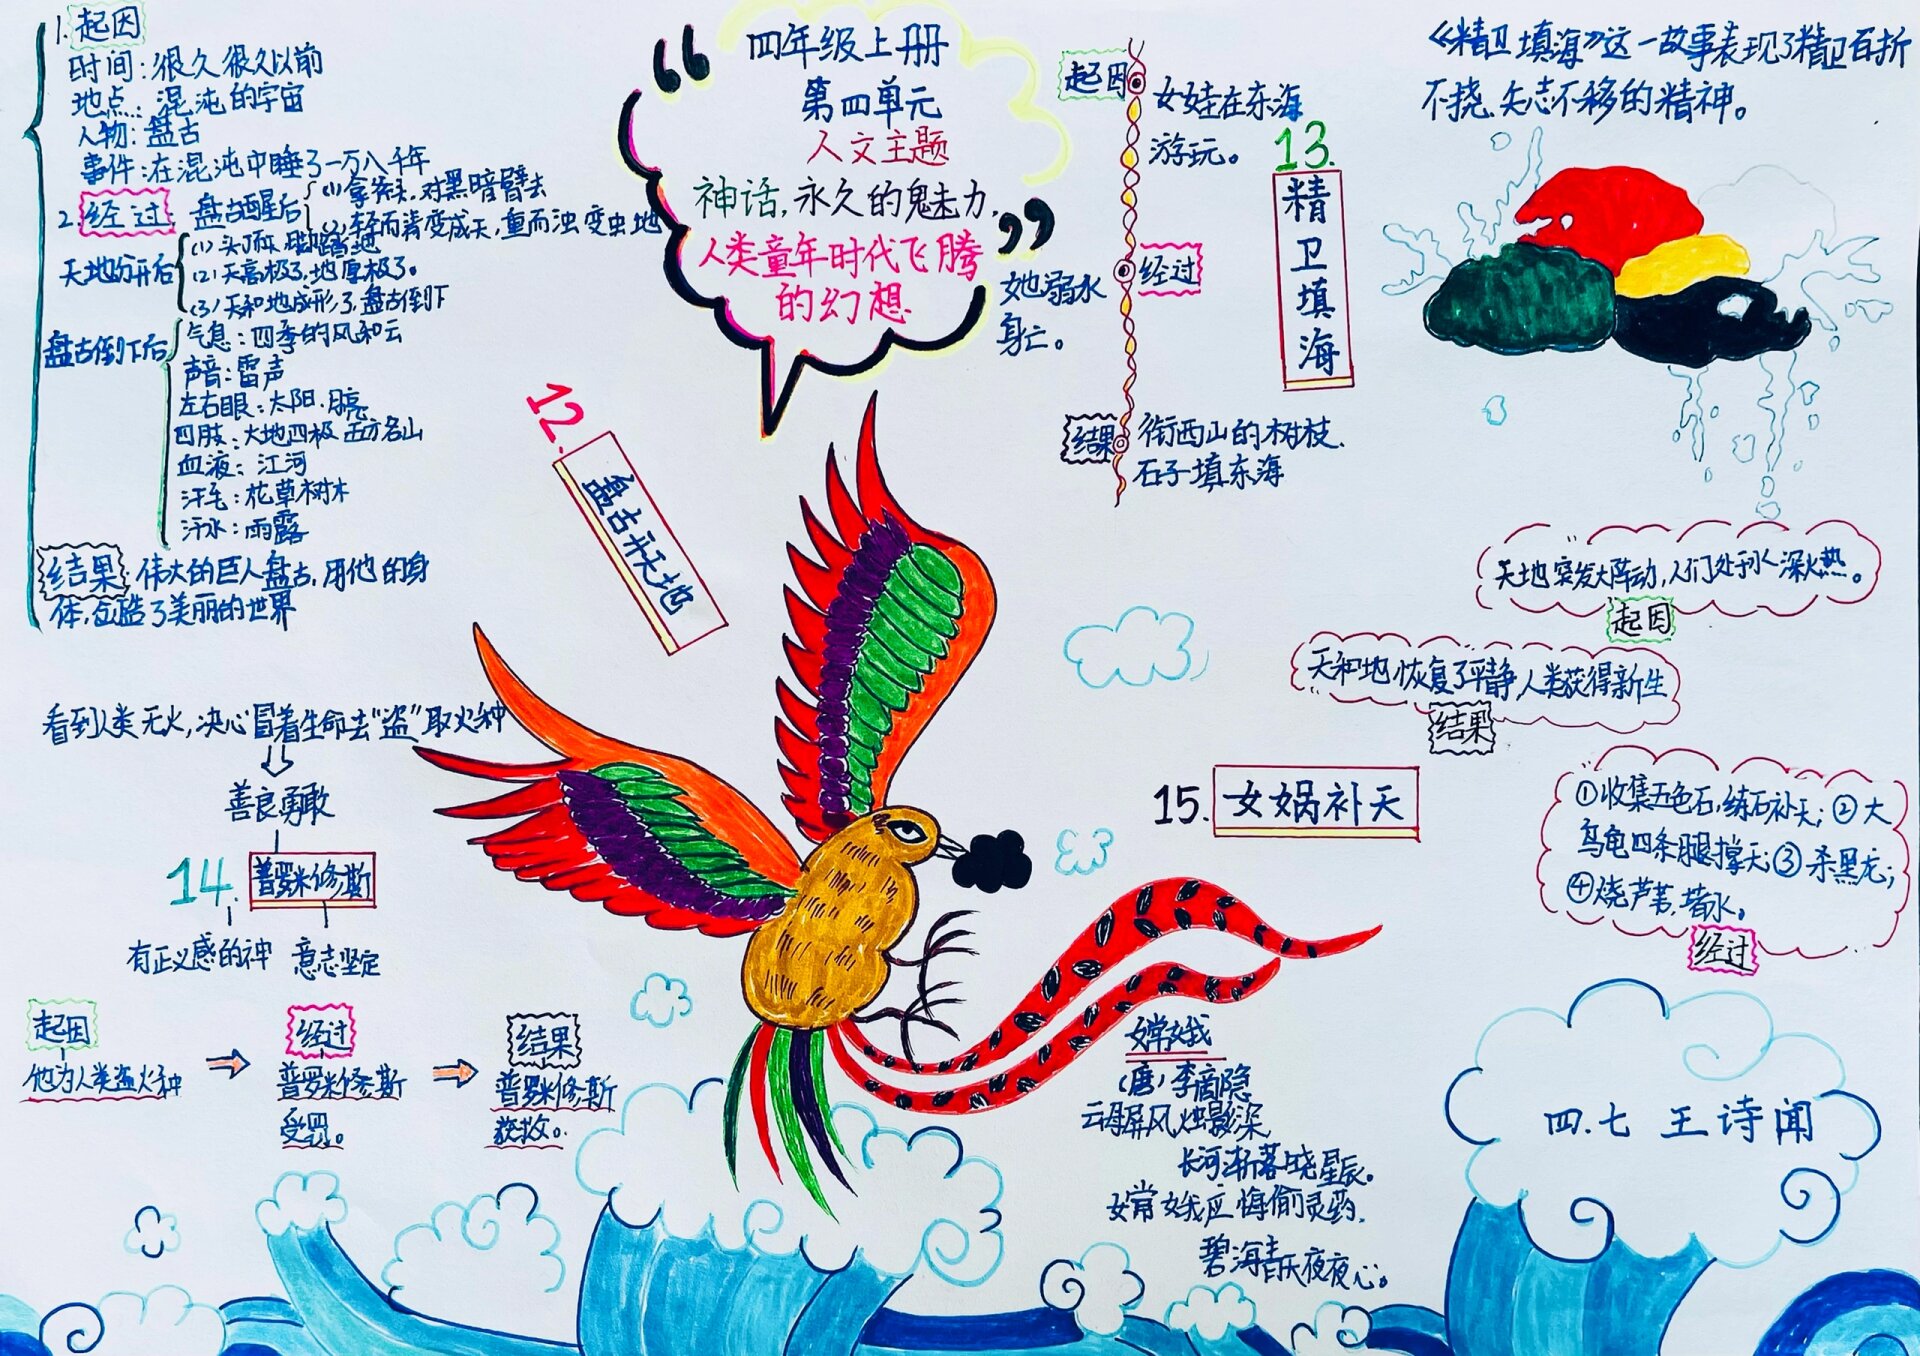 1. 起因
时间：很久很久以前
地点：混沌的宇宙
人物：盘古
事件：在混沌中睡了一万八千年
2. 经过：盘古醒后
(1)拿斧头，对黑暗劈去
(2)轻而清变成天，重而浊变虫地
天地分开后
(1)头顶天，脚踏地
(2)天高极了，地厚极了。
(3)天和地成形了，盘古倒下
盘古倒下后
气息：四季的风和云
声音：雷声
左右眼：太阳、月亮
四肢：大地四极 五方名山
血液：江河
汗毛：花草树木
汗水：雨露
结果：伟大的巨人盘古，用他的身
体，创造了美丽的世界
“四年级上册
第四单元
人文主题
神话，永久的魅力，
人类童年时代飞腾
的幻想”
12.
盘古开天地
13.
精卫填海
起因
女娃在东海
游玩。
经过
她溺水
身亡。
结果
衔西山的树枝、
石子填东海
《精卫填海》这一故事表现了精卫百折
不挠、矢志不移的精神。
看到人类无火，决心冒着生命去“盗”取火种
善良勇敢
14.
普罗米修斯
有正义感的神
意志坚定
起因
他为人类盗火种
经过
普罗米修斯
受罚。
结果
普罗米修斯
获救。
15. 女娲补天
天地突发大阵动，人们处于水深火热。
起因
天和地恢复了平静，人类获得新生
结果
①收集五色石，练石补天；②大
乌龟四条腿撑天；③杀黑龙；
④烧芦苇，堵水。
经过
嫦娥
（唐）李商隐
云母屏风烛影深
长河渐落晓星辰。
嫦娥应悔偷灵药，
碧海青天夜夜心。
四.七 王诗闻